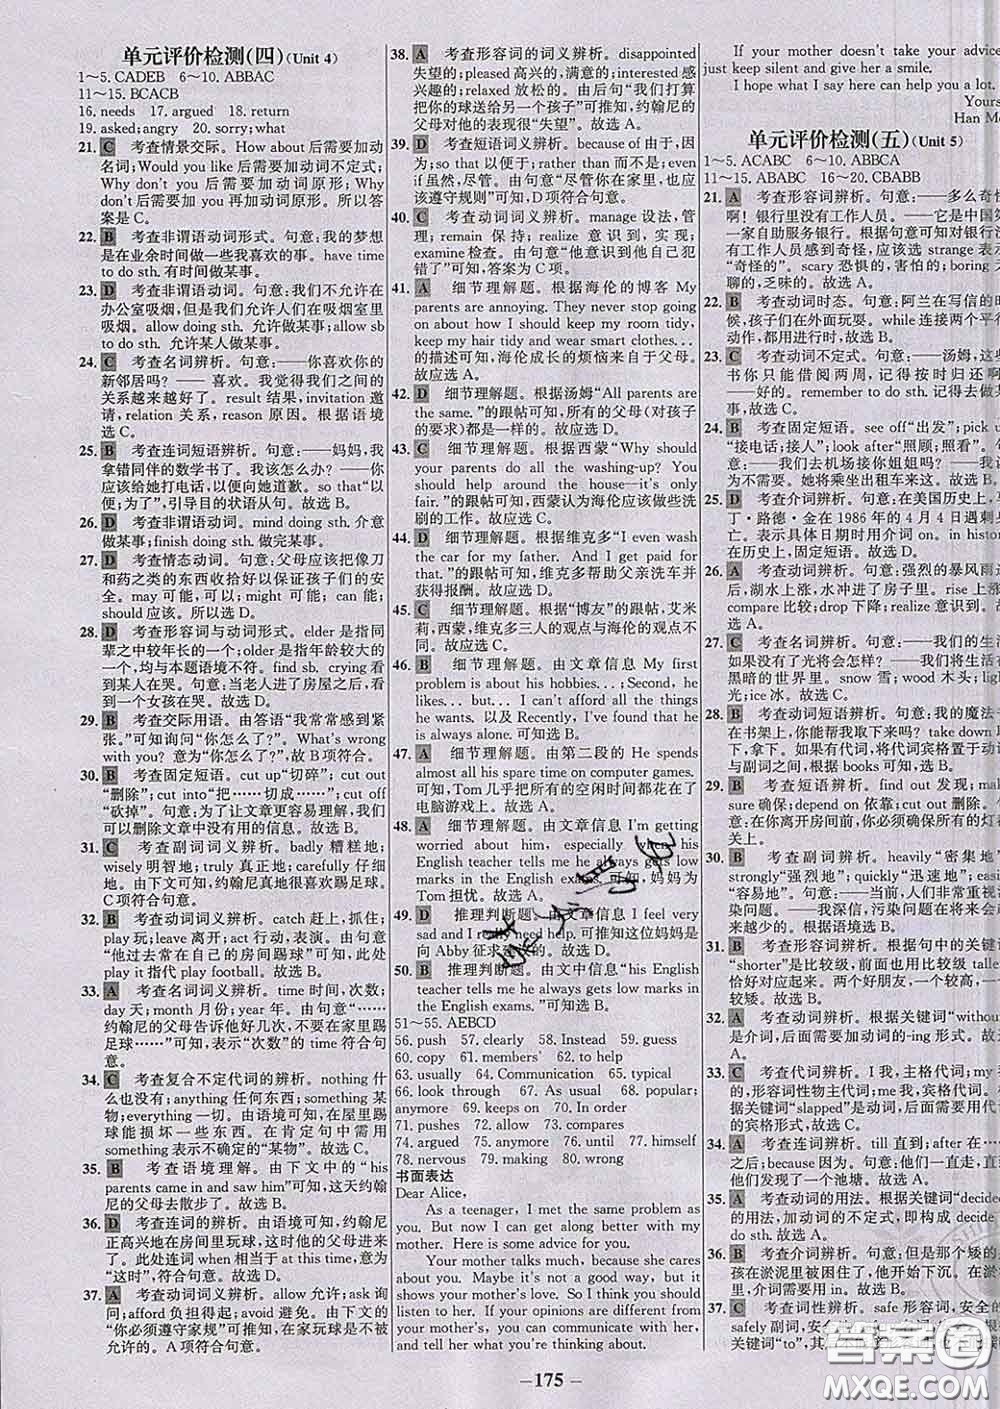 单元评价检测(四)(Unit 4)
1～5. CADEB 6～10. ABBAC
11～15. BCACB
16. needs 17. argued 18. return
19. asked;angry 20. sorry;what
21. C 考查情景交际。How about 后需要加动
名词;Would you like 后需要加动词不定式;
Why don't you 后需要加动词原形;Why
not 后需要加动词原形。所以答
案是C。
22. B 考查非谓语动词形式。句意:我的梦想
是在业余时间做一些我喜欢的事。have time
to do sth. 有时间做某事。
23. D 考查非谓语动词。句意:我们不允许在
办公室吸烟,但是我们允许人们在吸烟室里
吸烟。allow doing sth. 允许做某事;allow sb
to do sth. 允许某人做某事。
24. C 考查名词辨析。句意:——你喜欢你的
新邻居吗? ——喜欢。我觉得我们之间的
关系越来越好了。result 结果,invitation 邀
请,relation 关系,reason 原因。根据语境
选C。
25. B 考查连词短语辨析。句意:——妈妈,我
拿错同伴的数学书了。我该怎么办? ——你
应该给她打电话,以便向她道歉。so that“以
便;为了”,引导目的状语从句。故选B。
26. D 考查非谓语动词。mind doing sth. 介意
做某事;finish doing sth. 做完某事。
27. D 考查情态动词。句意:父母应该把像刀
和药之类的东西收拾好以保证孩子们的安
全。may 可能,可以;might 可能;can 能;
should 应该。所以选D。
28. D 考查形容词与动词形式。elder 是指同
辈之中较年长的一个;older 是指年龄较大的
一个,均与本题语境不符。find sb. crying 看
到某人在哭。句意:当她走出房屋时,她看到
一个女孩在哭。故选D。
29. B 考查交际用语。由答语“我常常感到紧
张。”可知询问“你怎么了?”。What's wrong
with you? 意为“你怎么了?”,故B项符合。
30. B 考查固定短语。cut up“切碎”;cut out
“删除”;cut into“把……切成……”;cut off
“砍掉”。句意:为了让文章更容易理解,我们
可以删除文章中没有用的信息。故选B。
31. C 考查副词词义辨析。badly 糟糕地;
wisely 明智地;truly 真正地;carefully 仔细
地。由语境可知,约翰尼真地很喜欢踢足球。
C项符合句意。
32. B 考查动词词义辨析。catch 赶上,抓住;
play 玩;leave 离开;act 行动,表演。由句意
“他过去常常在自己的房间踢球”可知,此处
play it 指代 play football。故选B。
33. A 考查名词词义辨析。time 时间,次数;
day 天;month 月份;year 年。由句意“……
约翰尼的父母告诉他好几次,不要在家里踢
足球……”可知,表示“次数”的 time 符合句
意。故选A。
34. C 考查复合不定代词的辨析。nothing 什
么也没有;anything 任何东西;something 某
物;everything 一切。由语境可知,在屋里踢
球能损坏一些东西。在肯定句中需用
something 表示不确定的“某物”。故选C。
35. B 考查语境理解。由下文中的“his
parents came in and saw him”可知,这天约翰
尼的父母去散步了。故选B。
36. D 考查连词的辨析。由语境可知,约翰尼
正高兴地在房间里玩球,这时他的父母走了
进来。此处连词 when 相当于 at this time,意
为“这时”,符合句意。故选D。
37. A 考查动词词义辨析。allow 允许;ask 询
问;afford 负担得起;avoid 避免。由下文的
“你必须遵守家规”可推知,在家玩球是不被
允许的。A项符合句意。
38. A 考查形容词的词义辨析。disappointed
失望的;pleased 高兴的,满意的;interested 感
兴趣的;relaxed 放松的。由后句“我们打算
把你的球送给另一个孩子”可推知,约翰尼的
父母对他的表现很“失望”。故选A。
39. D 考查短语词义辨析。because of 由于,因
为;rather than 而不是;even if 尽管;in spite
of 虽然,尽管。由“尽管你在家里,也应该
遵守规则”可知,D项符合句意。
40. C 考查动词词义辨析。manage 设法,管
理;remain 保持;realize 意识到,实现;
examine 检查。由句意“他意识到他自己犯
错了”可知,答案为C项。
41. A 细节理解题。根据海伦的博客 My
parents are annoying. They never stop talking
about how I should keep my room tidy,
keep my hair tidy and wear smart clothes...
的描述可知,海伦成长的烦恼来自于父母。
故应选A。
42. D 细节理解题。根据汤姆“All parents are
the same.”的跟帖可知,所有的父母(对孩子
的要求)都是一样的。故应选D。
43. C 细节理解题。根据西蒙“Why should
your parents do all the washing-up? You
should help around the house—it's only
fair.”的跟帖可知,西蒙认为海伦应该做些洗
刷的工作。故应选C。
44. D 细节理解题。根据维克多“I even wash
the car for my father. And I get paid for
that.”的跟帖可知,维克多帮助父亲洗车并
获得报酬。故应选D。
45. C 细节理解题。根据“博友”的跟帖,艾米
莉,西蒙,维克多三人的观点与海伦的观点不
同。故应选C。
46. B 细节理解题。由文章信息 My first
problem is about his hobbies...;Second, he
likes... but I can't afford all the things
he wants. 以及 Recently,I've found that he
is always alone. 可知。故选B。
47. A 细节理解题。由第二段的 He spends
almost all his spare time on computer games.
可知,Tom几乎把所有的空闲时间都花在了
电脑游戏上。故选A。
48. A 细节理解题。由文章信息 I'm getting
worried about him, especially when his
English teacher tells me he always gets low
marks in the English exams. 可知,妈妈为
Tom担忧。故选A。
49. D 推理判断题。由文章信息 I feel very
sad and I really need help. 可推知这位妈妈是
向 Abby 征求意见的。故选D。
50. B 推理判断题。由文中信息“his English
teacher tells me he always gets low marks in
the English exams.”可知选B。
51～55. AEBCD
56. push 57. clearly 58. Instead 59. guess
60. copy 61. members' 62. to help
63. usually 64. Communication 65. typical
66. look through 67. As usual 68. popular;
anymore 69. keeps on 70. In order
71. pushes 72. allow 73. compares
74. argued 75. anymore 76. until 77. himself
78. nervous 79. making 80. wrong
书面表达
Dear Alice,
As a teenager, I met the same problem as
you. But now I can get along better with my
mother. Here is some advice for you.
Your mother talks much, because she cares
about you. Maybe it's not a good way, but it
shows your mother's love. So I think you should
listen to her. If your opinions are different from
your mother's, you can communicate with her,
and tell her what you're thinking about.
If your mother doesn't take your advice
just keep silent and give her a smile.
I hope what I say here can help you a lot.
Yours
Han Me
单元评价检测(五)(Unit 5)
1～5. ACABC 6～10. ABBCA
11～15. ABABC 16～20. CBABB
21. A 考查形容词辨析。句意:——多么奇怪
啊! 银行里没有工作人员。——它是中国
一家自助服务银行。根据句意可知对银行没
有工作人员感到奇怪,应该选 strange 表示
“奇怪的”。scary 恐惧的,害怕的;boring 无
聊的,乏味的。故选A。
22. B 考查动词时态。句意:阿兰在写信的时
候,孩子们在外面玩耍。while 连接两个平行
动作,都用进行时,故选B。
23. C 考查动词不定式。句意:——汤姆,这
书你只能借阅两周,记得按时归还啊
——好的。remember to do sth. 记得去做某
事,故选C。
24. B 考查固定短语。see off“出发”;pick up
“接电话;接人”;look after“照顾;照看”。句
意:——我们去机场接你姐姐吗? ——我认
为不需要。她将乘坐出租车来这。故选B。
25. D 考查介词辨析。句意:在美国历史上,马
丁·路德·金在1986年的4月4日遇刺身
亡。表示具体日期时用介词on。in history
在历史上,固定短语。故选D。
26. A 考查动词辨析。句意:强烈的暴风雨过
后,湖水上涨,水冲进了房子里。rise 上涨
compare 比较;drop 下降;realize 意识到。故
选A。
27. C 考查名词辨析。句意:——我们的生活
如果没有了光将会怎样? ——我们将生活在
黑暗的世界里。snow 雪;wood 木头;light
光;ice 冰。故选C。
28. B 考查动词短语辨析。句意:我的魔法书
在书架上,你能帮我取下来吗? take down 取
下,拿下。如果有代词,将代词宾格置于动词
与副词之间。根据 books 可知,故选B。
29. B 考查动词短语辨析。find out 发现;make
sure 确保;depend on 依靠;cut out 删除。句
意:在你离开房间前,你必须确保所有的灯都
关上。故选B。
30. B 考查副词辨析。heavily“密集地”
strongly“强烈地”;quickly“迅速地”;easily
“容易地”。句意:——当前,人们非常重视
染问题。——我深信,污染问题在将来会变得
越来越少的。根据语境故选B。
31. B 考查形容词辨析。根据句中的关键词
“shorter”是比较级,前面也用比较级 taller
恰好对应起来。两个好朋友,一个较高,一个
较矮。故选B。
32. A 考查动词形式。根据关键词“without
是介词,后面需要加动词的-ing 形式。故选
A。
33. C 考查代词辨析。I 我,主格代词;my 我
的,形容词性物主代词;me 我,宾格代词。根
据关键词“slapped”是动词,后面需要用代词
的宾格形式。故选C。
34. A 考查连词辨析。till 直到;after 在……
之后;because 因为。句意:他们一直走,直到
发现了一个池塘。故选A。
35. A 考查动词的用法。根据关键词“decided
的用法,加动词的不定式,即构成 decide to
do sth. 故选A。
36. B 考查介词辨析。句意:但是那个矮个
孩在淤泥里被困住了,他开始下沉。在淤泥
里,介词需要用in。故选B。
37. C 考查词性辨析。safe 形容词,安全的
safely 副词,安全地;
关键词“to”,
答案圈
MXQE.COM
— 175 —